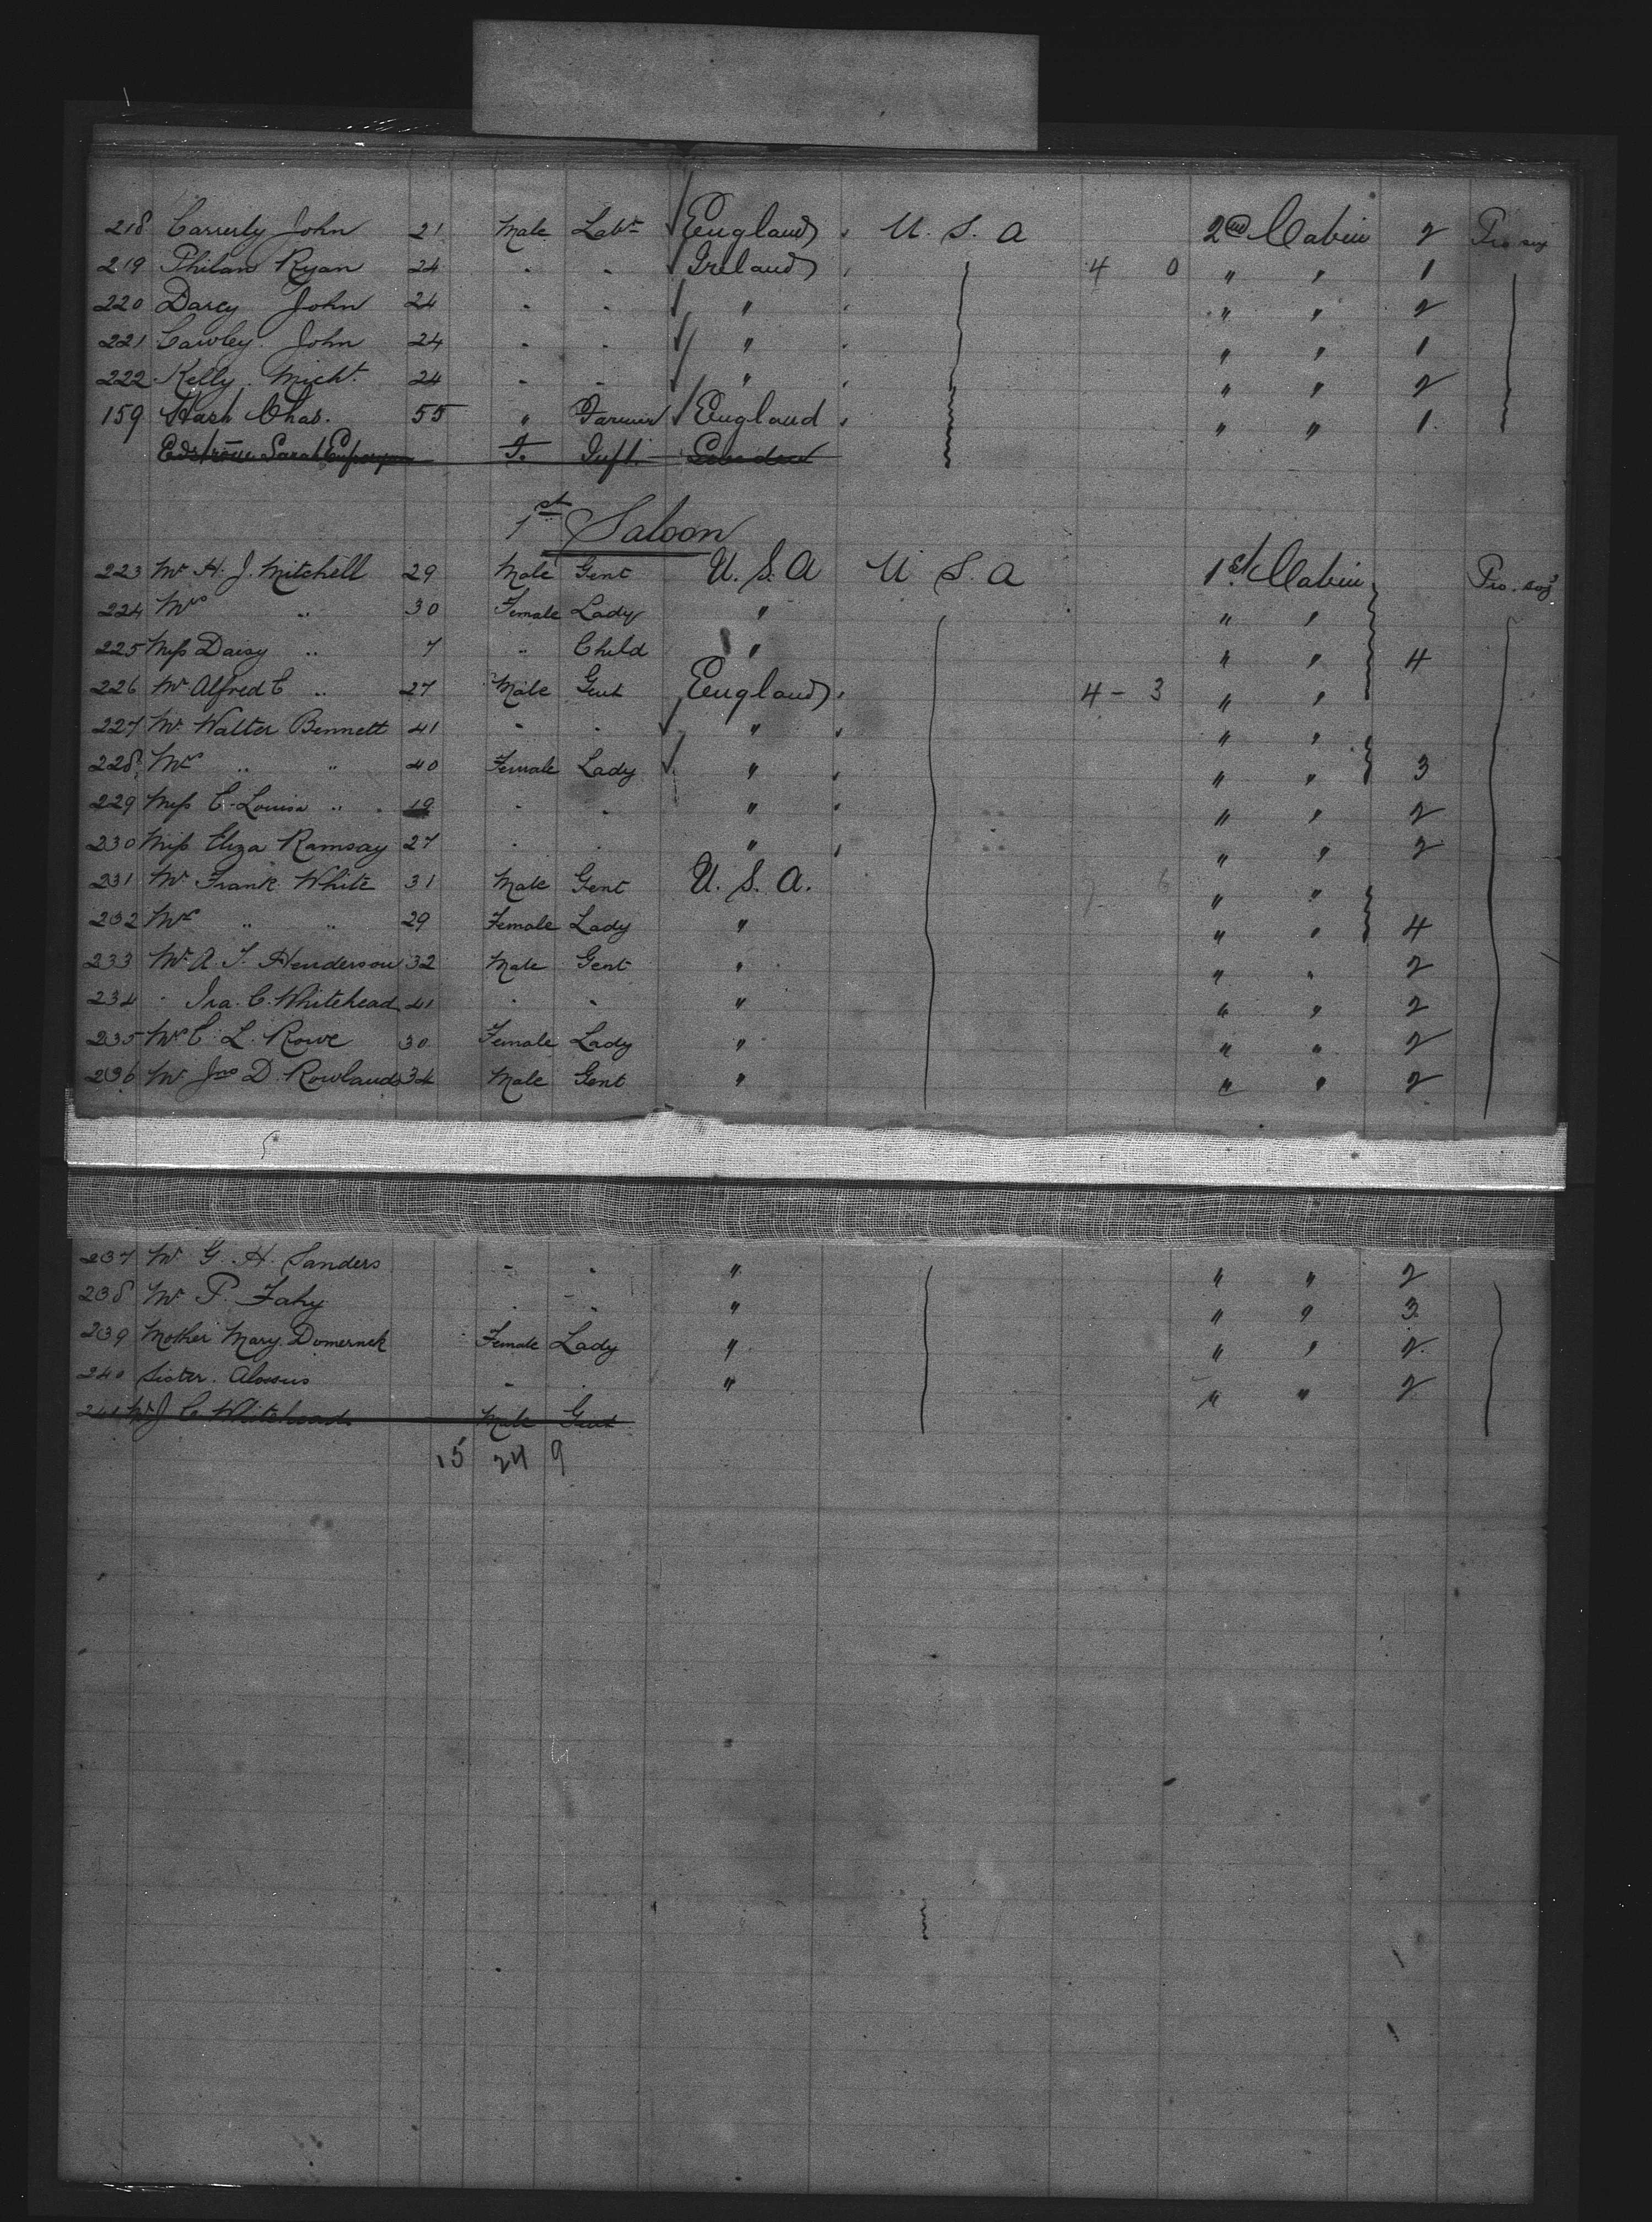 218 Carrerly John 21 Male Labr England U. S. A 2nd Cabin 2
219 Philan Ryan 24 " " Ireland 4 0 " " 1
220 Darcy John 24 " " " " " 2
221 Cawley John 24 " " " " " 1
222 Kelly Micht. 24 " " " " " 2
159 Chas. 55 " Farmer England " " 1
Sarah F. Inft.
1st Saloon
223 Mr H. J. Mitchell 29 Male Gent U. S. A U S. A 1st Cabin
224 Mrs " 30 Female Lady " " "
225 Miss Daisy " 7 " Child " " " 4
226 Mr Alfred C " 27 Male Gent England 4 - 3 " "
227 Mr Walter Bennett 41 " " " " "
228 Mrs " " 40 Female Lady " " " 3
229 Miss C. Louisa " 19 " " " " " 2
230 Miss Eliza Ramsay 27 " " " " " 2
231 Mr Frank White 31 Male Gent U. S. A. " "
232 Mrs " " 29 Female Lady " " " 4
233 Mr A. T. Henderson 32 Male Gent " " " 2
234 " Ira. C. Whitehead 41 " " " " " 2
235 Mrs C. L. Rowe 30 Female Lady " " " 2
236 Mr Jno D. Rowlands 34 Male Gent " " " 2
237 Mr G. H. Sanders " " " " " 2
238 Mr P. Fahy " " " " " 3
239 Mother Mary Domernek Female Lady " " " 2
240 Sister Alosius " " " " " 2
241 Mr J C Whitehead Male Gent
15 24 9